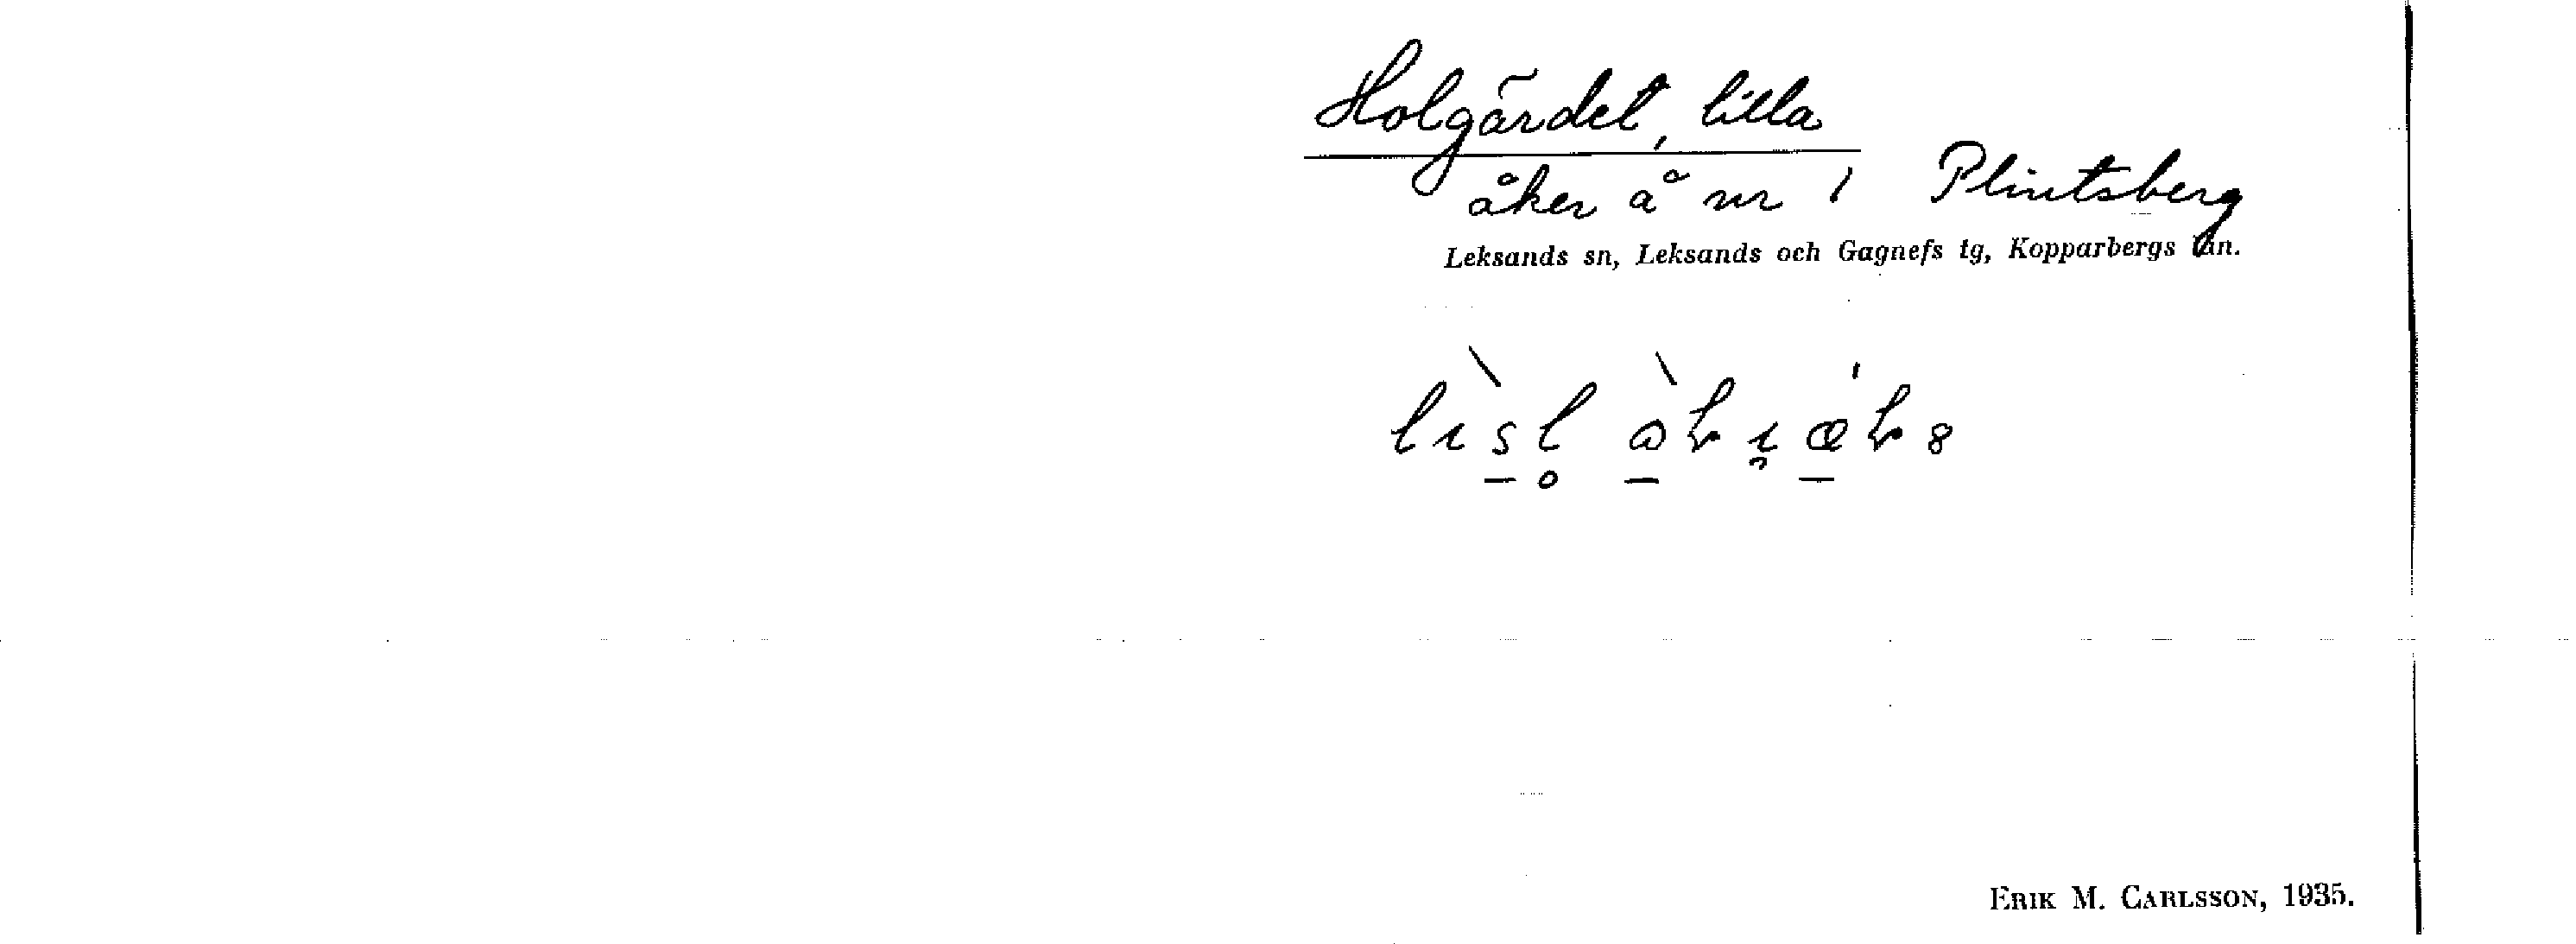 Holgärdet, lilla
åker å nr 1 Plintsberg
Leksands sn, Leksands och Gagnefs tg, Kopparbergs län.
ERIK M. CARLSSON, 1935.